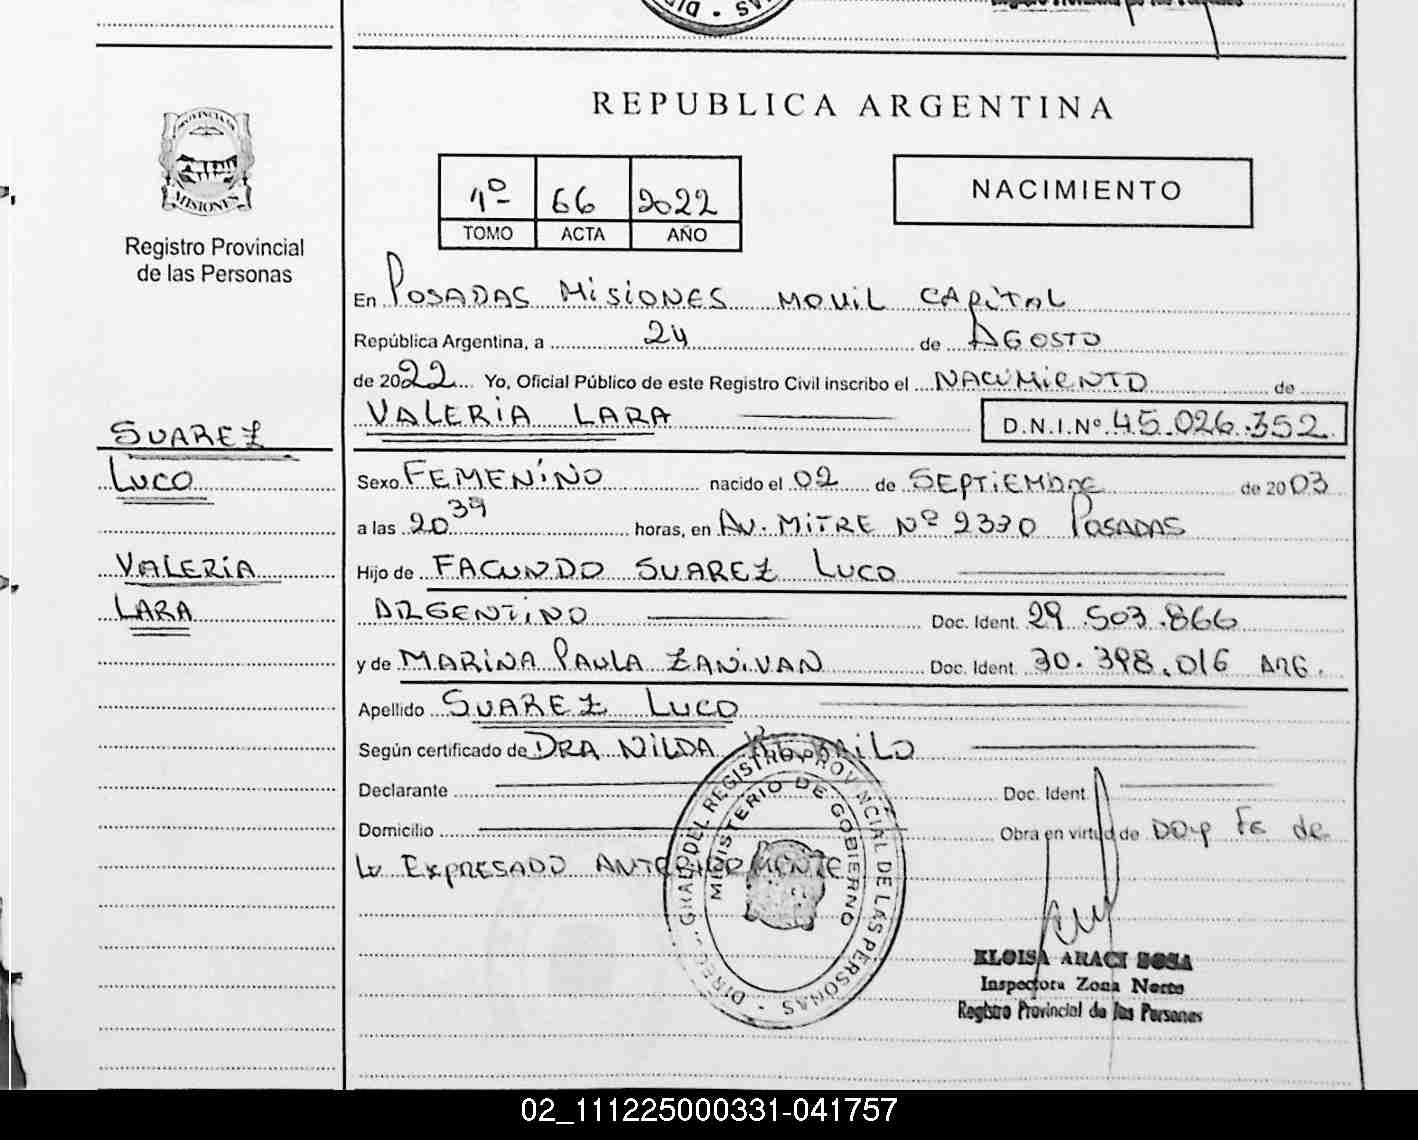 REPUBLICA ARGENTINA
PROVINCIA DE
MISIONES
Registro Provincial
de las Personas
1º 66 2022
TOMO ACTA AÑO
NACIMIENTO
En POSADAS MISIONES MOVIL CAPITAL
República Argentina, a 24 de AGOSTO
de 2022 Yo, Oficial Público de este Registro Civil inscribo el NACIMIENTO de
VALERIA LARA D.N.I.Nº 45.026.352
SUAREZ
LUCO
VALERIA
LARA
Sexo FEMENINO nacido el 02 de SEPTIEMBRE de 2003
a las 20 39 horas, en AV. MITRE Nº 2330 POSADAS
Hijo de FACUNDO SUAREZ LUCO
ARGENTINO Doc. Ident. 29.503.866
y de MARINA PAULA ZANIVAN Doc. Ident. 30.398.016 ARG.
Apellido SUAREZ LUCO
Según certificado de DRA NILDA
Declarante Doc. Ident.
Domicilio Obra en virtud de DOY FE de
Lo EXPRESADO ANTERIORMENTE
DIREC. GRAL. DEL REGISTRO PROVINCIAL DE LAS PERSONAS
MINISTERIO DE GOBIERNO
ELOISA ARACI SOSA
Inspectora Zona Norte
Registro Provincial de las Personas
02_111225000331-041757